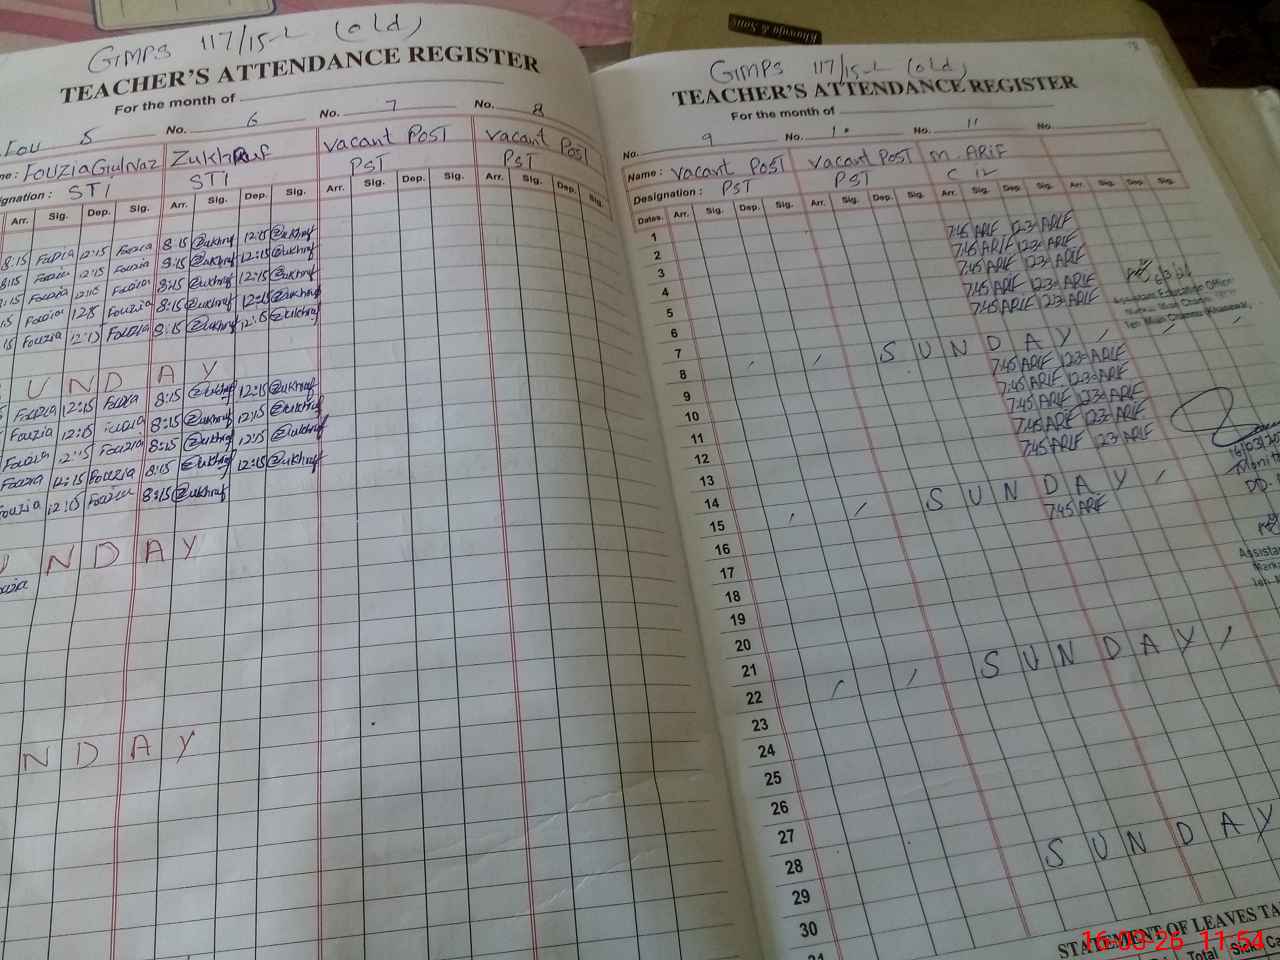 GMPS 117/15-L (old)
TEACHER'S ATTENDANCE REGISTER
For the month of
5 No. 6 No. 7 No. 8
Fouzia Gulnaz Zukhruf Vacant Post Vacant Post
STI STI PST PST
Arr. Sig. Dep. Sig. Arr. Sig. Dep. Sig. Arr. Sig. Dep. Sig. Arr. Sig. Dep. Sig.
8:15 Fouzia 12:15 Fouzia 8:15 Zukhruf 12:15 Zukhruf
8:15 Fouzia 12:15 Fouzia 8:15 Zukhruf 12:15 Zukhruf
:15 Fouzia 12:15 Fouzia 8:15 Zukhruf 12:15 Zukhruf
15 Fouzia 12:15 Fouzia 8:15 Zukhruf 12:15 Zukhruf
15 Fouzia 12:15 Fouzia 8:15 Zukhruf 12:15 Zukhruf
U N D A Y
Fouzia 12:15 Fouzia 8:15 Zukhruf 12:15 Zukhruf
Fouzia 12:15 Fouzia 8:15 Zukhruf 12:15 Zukhruf
Fouzia 12:15 Fouzia 8:15 Zukhruf 12:15 Zukhruf
Fouzia 12:15 Fouzia 8:15 Zukhruf 12:15 Zukhruf
Fouzia 12:15 Fouzia 8:15 Zukhruf
U N D A Y
ouzia
N D A Y
Khawaja & Sons
GMPS 117/15-L (old)
TEACHER'S ATTENDANCE REGISTER
For the month of
No. 9 No. 10 No. 11 No.
Name : Vacant Post Vacant Post M. ARIF
Designation : PST PST C IV
Dates. Arr. Sig. Dep. Sig. Arr. Sig. Dep. Sig. Arr. Sig. Dep. Sig. Arr. Sig. Dep. Sig.
1
2 7:45 ARIF 12:3 ARIF
3 7:45 ARIF 12:3 ARIF
4 7:45 ARIF 12:3 ARIF
5 7:45 ARIF 12:3 ARIF
6 7:45 ARIF 12:3 ARIF
7
8 S U N D A Y
9 7:45 ARIF 12:3 ARIF
10 7:45 ARIF 12:3 ARIF
11 7:45 ARIF 12:3 ARIF
12 7:45 ARIF 12:3 ARIF
13 7:45 ARIF 12:3 ARIF
14
15 S U N D A Y
16 7:45 ARIF
17
18
19
20
21
22 S U N D A Y
23
24
25
26
27
28
29 S U N D A Y
30
31
Assistant Education Officer
STATEMENT OF LEAVES TA
Total
16-03-26 11:54